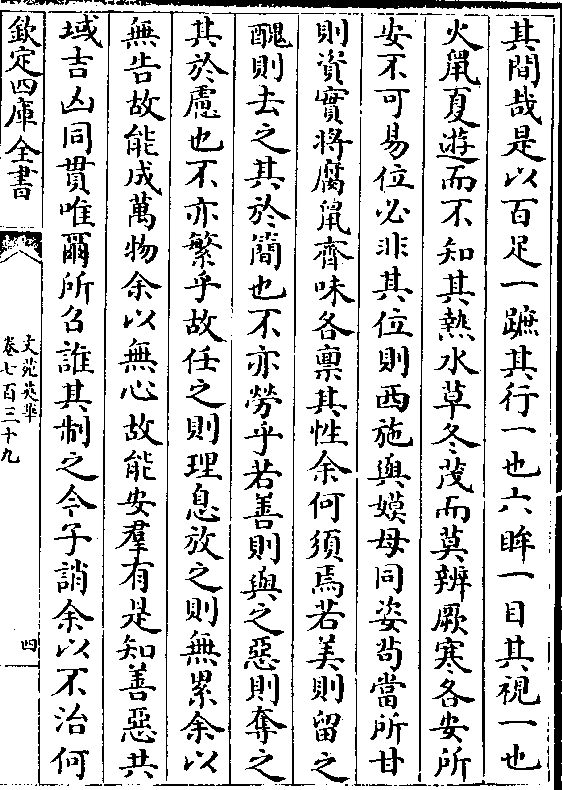 其間哉是以百足一蹠其行一也六眸一目其視一也
火鼠夏遊而不知其熱水草冬茂而莫辨厥寒各安所
安不可易位必非其位則西施與嫫母同姿茍當所甘
則資實將腐鼠齊味各禀其性余何須焉若美則留之
醜則去之其於簡也不亦勞乎若善則與之惡則奪之
其於慮也不亦繁乎故任之則理息放之則無累余以
無告故能成萬物余以無心故能安羣有是知善惡共
域吉凶同貫唯爾所召誰其制之今子誚余以不治何
欽定四庫全書
文苑英華
卷七百三十九
四